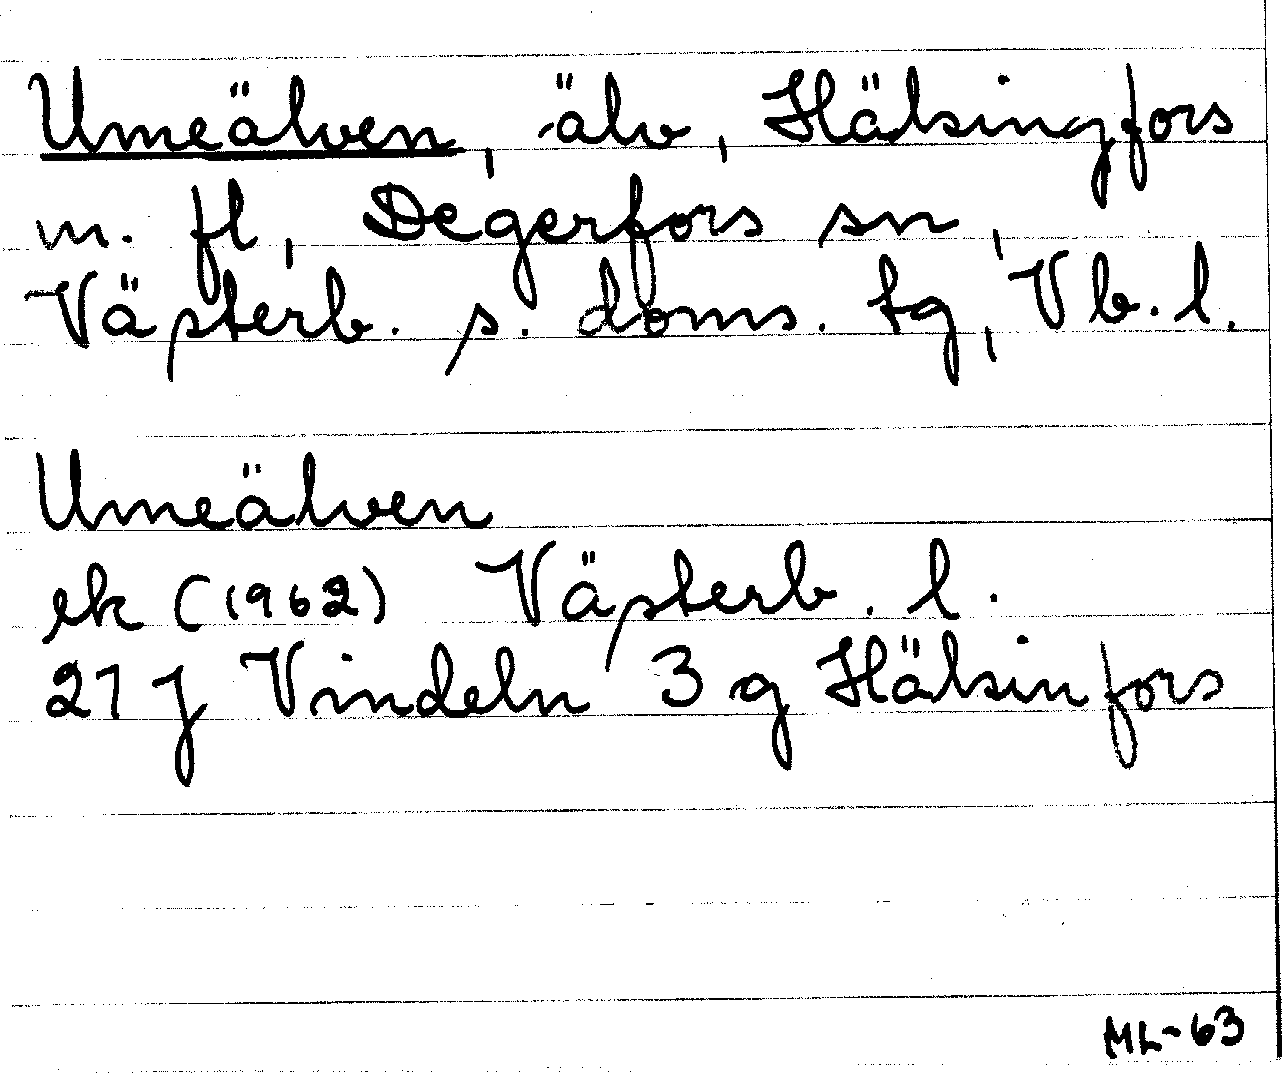 Umeälven, älv, Hälsingfors
m. fl, Degerfors sn,
Västerb. s. doms. tg, Vb. l.
Umeälven
ek (1962) Västerb. l.
21 J Vindeln 3 g Hälsinfors
ML-63